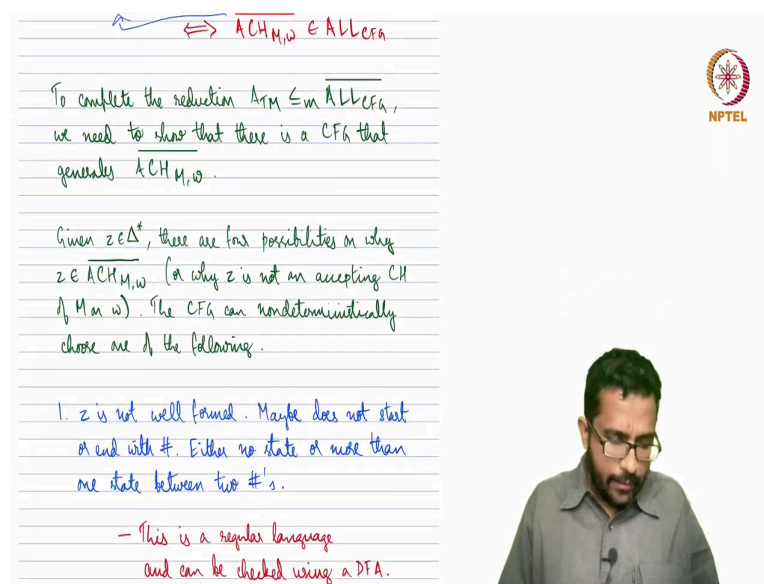 ⟺ \overline{ACH_{M,w}} ∈ ALL_{CFG}
To complete the reduction A_{TM} ≤_m \overline{ALL_{CFG}},
we need to show that there is a CFG that
generates \overline{ACH_{M,w}}.
Given z ∈ Δ*, there are four possibilities on why
z ∈ \overline{ACH_{M,w}} (or why z is not an accepting CH
of M on w). The CFG can nondeterministically
choose one of the following.
1. z is not well formed. Maybe does not start
or end with #. Either no state or more than
one state between two #'s.
– This is a regular language
and can be checked using a DFA.
NPTEL